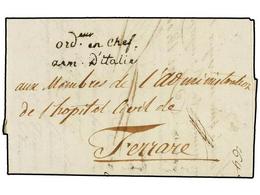 ord.eur en chef.
arm. d'Italie
aux Membres de l'administration
de l'hopital Civil de
Ferrare